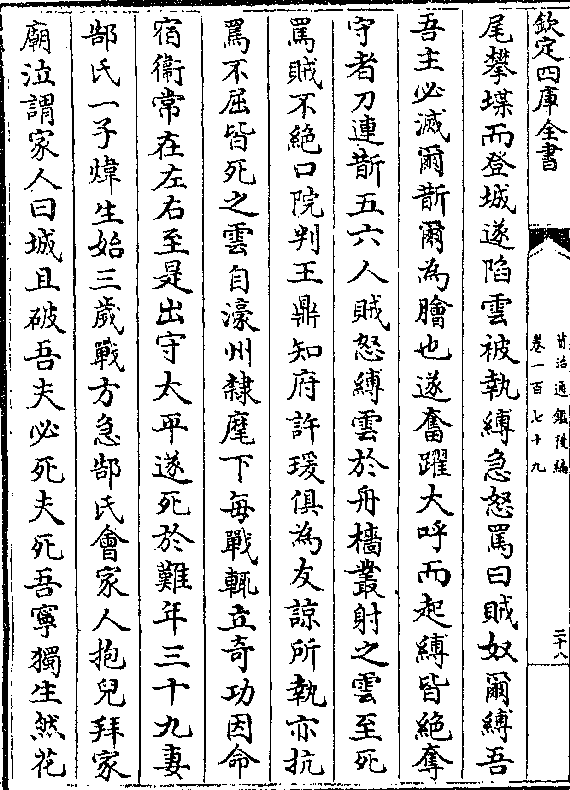 欽定四庫全書
資治通鑑後編
卷一百七十九
二十八
尾攀堞而登城遂陷雲被執縛急怒罵曰賊奴爾縛吾
吾主必滅爾斮爾為膾也遂奮躍大呼而起縛皆絕奪
守者刀連斮五六人賊怒縛雲於舟檣叢射之雲至死
罵賊不絕口院判王鼎知府許瑗俱為友諒所執亦抗
罵不屈皆死之雲自濠州隸麾下每戰輒立奇功因命
宿衞常在左右至是出守太平遂死於難年三十九妻
郜氏一子煒生始三歲戰方急郜氏會家人抱兒拜家
廟泣謂家人曰城且破吾夫必死夫死吾寧獨生然花